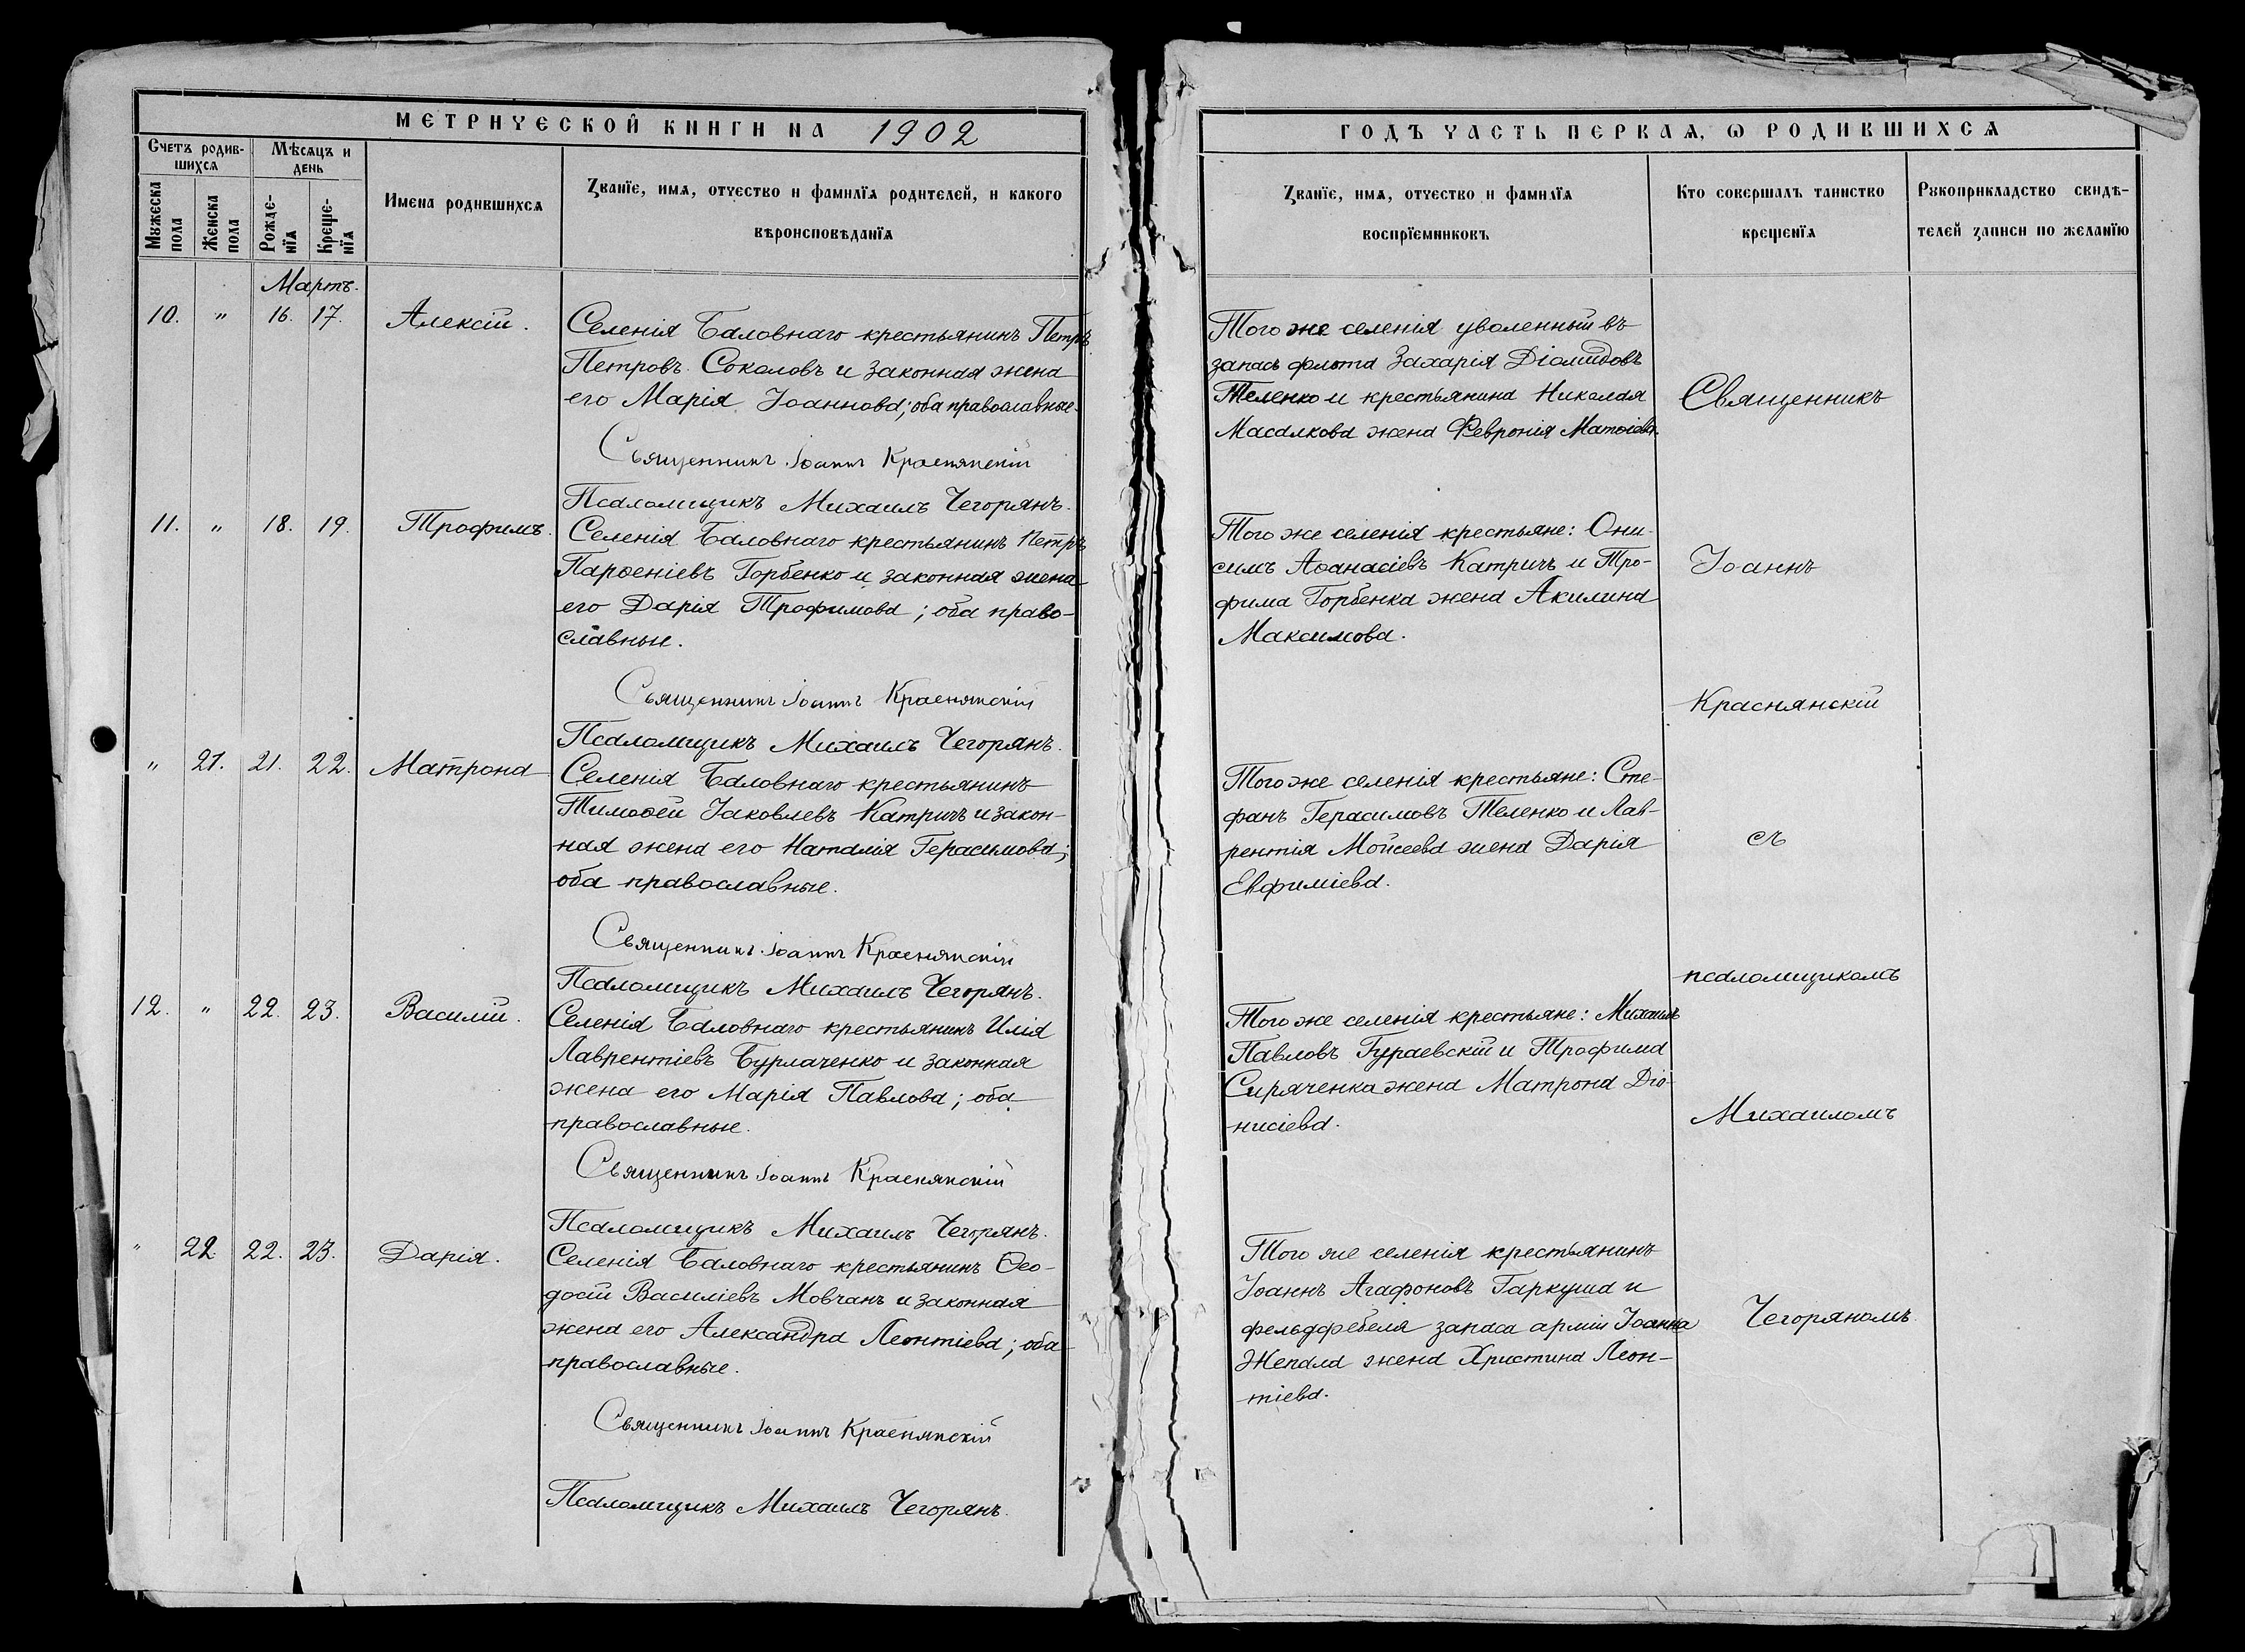 МЕТРИЧЕСКОЙ КНИГИ НА 1902
Счетъ родив-
шихся
Мѣсяцъ и
день
Мужеска
пола
Женска
пола
Рожде-
нїя
Креще-
нїя
Имена родившихся
Званїе, имя, отчество и фамилїя родителей, и какого
вѣроисповѣданїя
Мартъ.
10. " 16. 17. Алексій.
Селенія Баловнаго крестьянинъ Петръ
Петровъ Соколовъ и законная жена
его Марія Іоаннова; оба православные.
Священникъ Іоаннъ Краснянскій
Псаломщикъ Михаилъ Чегорянъ.
11. " 18. 19. Трофимъ.
Селенія Баловнаго крестьянинъ Петръ
Парѳеніевъ Горбенко и законная жена
его Дарія Трофимова; оба право-
славные.
Священникъ Іоаннъ Краснянскій
Псаломщикъ Михаилъ Чегорянъ.
" 21. 21. 22. Матрона
Селенія Баловнаго крестьянинъ
Тимоѳей Іаковлевъ Катричъ и закон-
ная жена его Наталія Герасимова;
оба православные.
Священникъ Іоаннъ Краснянскій
Псаломщикъ Михаилъ Чегорянъ.
12. " 22. 23. Василій.
Селенія Баловнаго крестьянинъ Илія
Лаврентіевъ Бурлаченко и законная
жена его Марія Павлова; оба
православные.
Священникъ Іоаннъ Краснянскій
Псаломщикъ Михаилъ Чегорянъ.
" 22. 22. 23. Дарія.
Селенія Баловнаго крестьянинъ Ѳео-
досій Василіевъ Мовчанъ и законная
жена его Александра Леонтіева; оба
православные.
Священникъ Іоаннъ Краснянскій
Псаломщикъ Михаилъ Чегорянъ.
ГОДЪ ЧАСТЬ ПЕРВАЯ, Ѡ РОДИВШИХСЯ
Званїе, имя, отчество и фамилїя
воспрїемниковъ
Кто совершалъ таинство
крещенїя
Рукоприкладство свидѣ-
телей записи по желанїю
Того же селенія уволенный въ
запасъ флота Захарія Діомидовъ
Теленко и крестьянина Николая
Масалкова жена Февронія Матѳіева.
Того же селенія крестьяне: Они-
симъ Аѳанасіевъ Катричъ и Тро-
фима Горбенка жена Акилина
Максимова.
Того же селенія крестьяне: Сте-
фанъ Герасимовъ Теленко и Лав-
рентія Мойсеева жена Дарія
Евфиміева.
Того же селенія крестьяне: Михаилъ
Павловъ Гураевскій и Трофима
Сиряченка жена Матрона Діо-
нисіева.
Того же селенія крестьянинъ
Іоаннъ Агафоновъ Гаркуша и
фельдфебеля запаса арміи Іоанна
Жепала жена Христина Леон-
тіева.
Священникъ
Іоаннъ
Краснянскій
съ
псаломщикомъ
Михаиломъ
Чегоряномъ